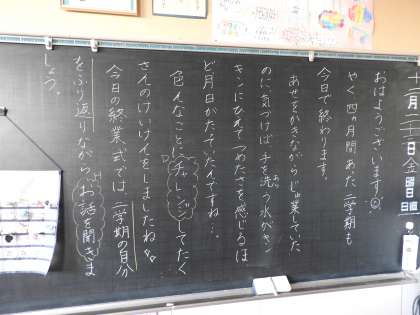 十二月二二日金曜日
日直
おはようございます。
やく四ヵ月間あった二学期も
今日で終わります。
あせをかきながらじゅ業していた
のに、気づけば手を洗う水がキン
キンにひえてつめたさを感じるほ
ど月日がたっていたんですね…。
色んなことにチャレンジしてたく
さんのけいけんをしましたね。
今日の終業式では、二学期の自分
をふり返りながら、お話を聞きま
しょう。